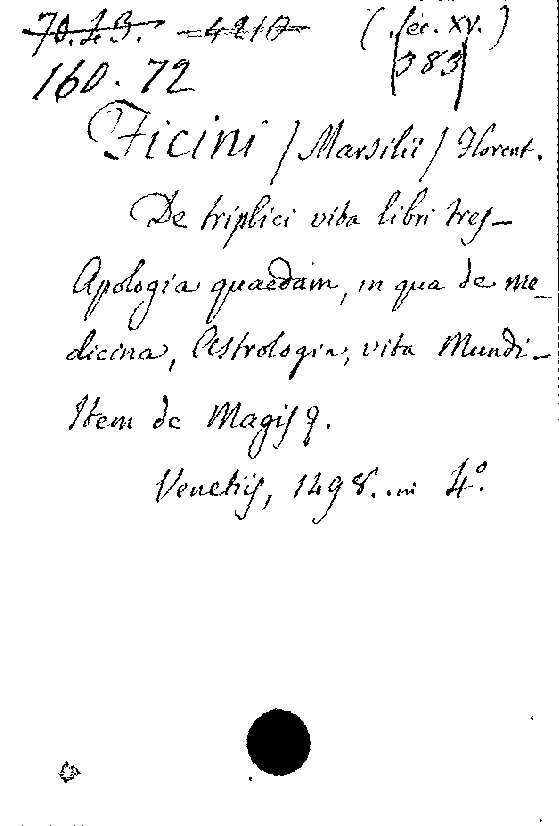 70.23. 4210 (Sec. XV.)
160.72 383
Ficini / Marsilii / Florent.
De triplici vita libri tres_
Apologia quaedam, in qua de me_
dicina, Astrologia, vita Mundi._
Item de Magis q.
Venetiis, 1498. in 4º.